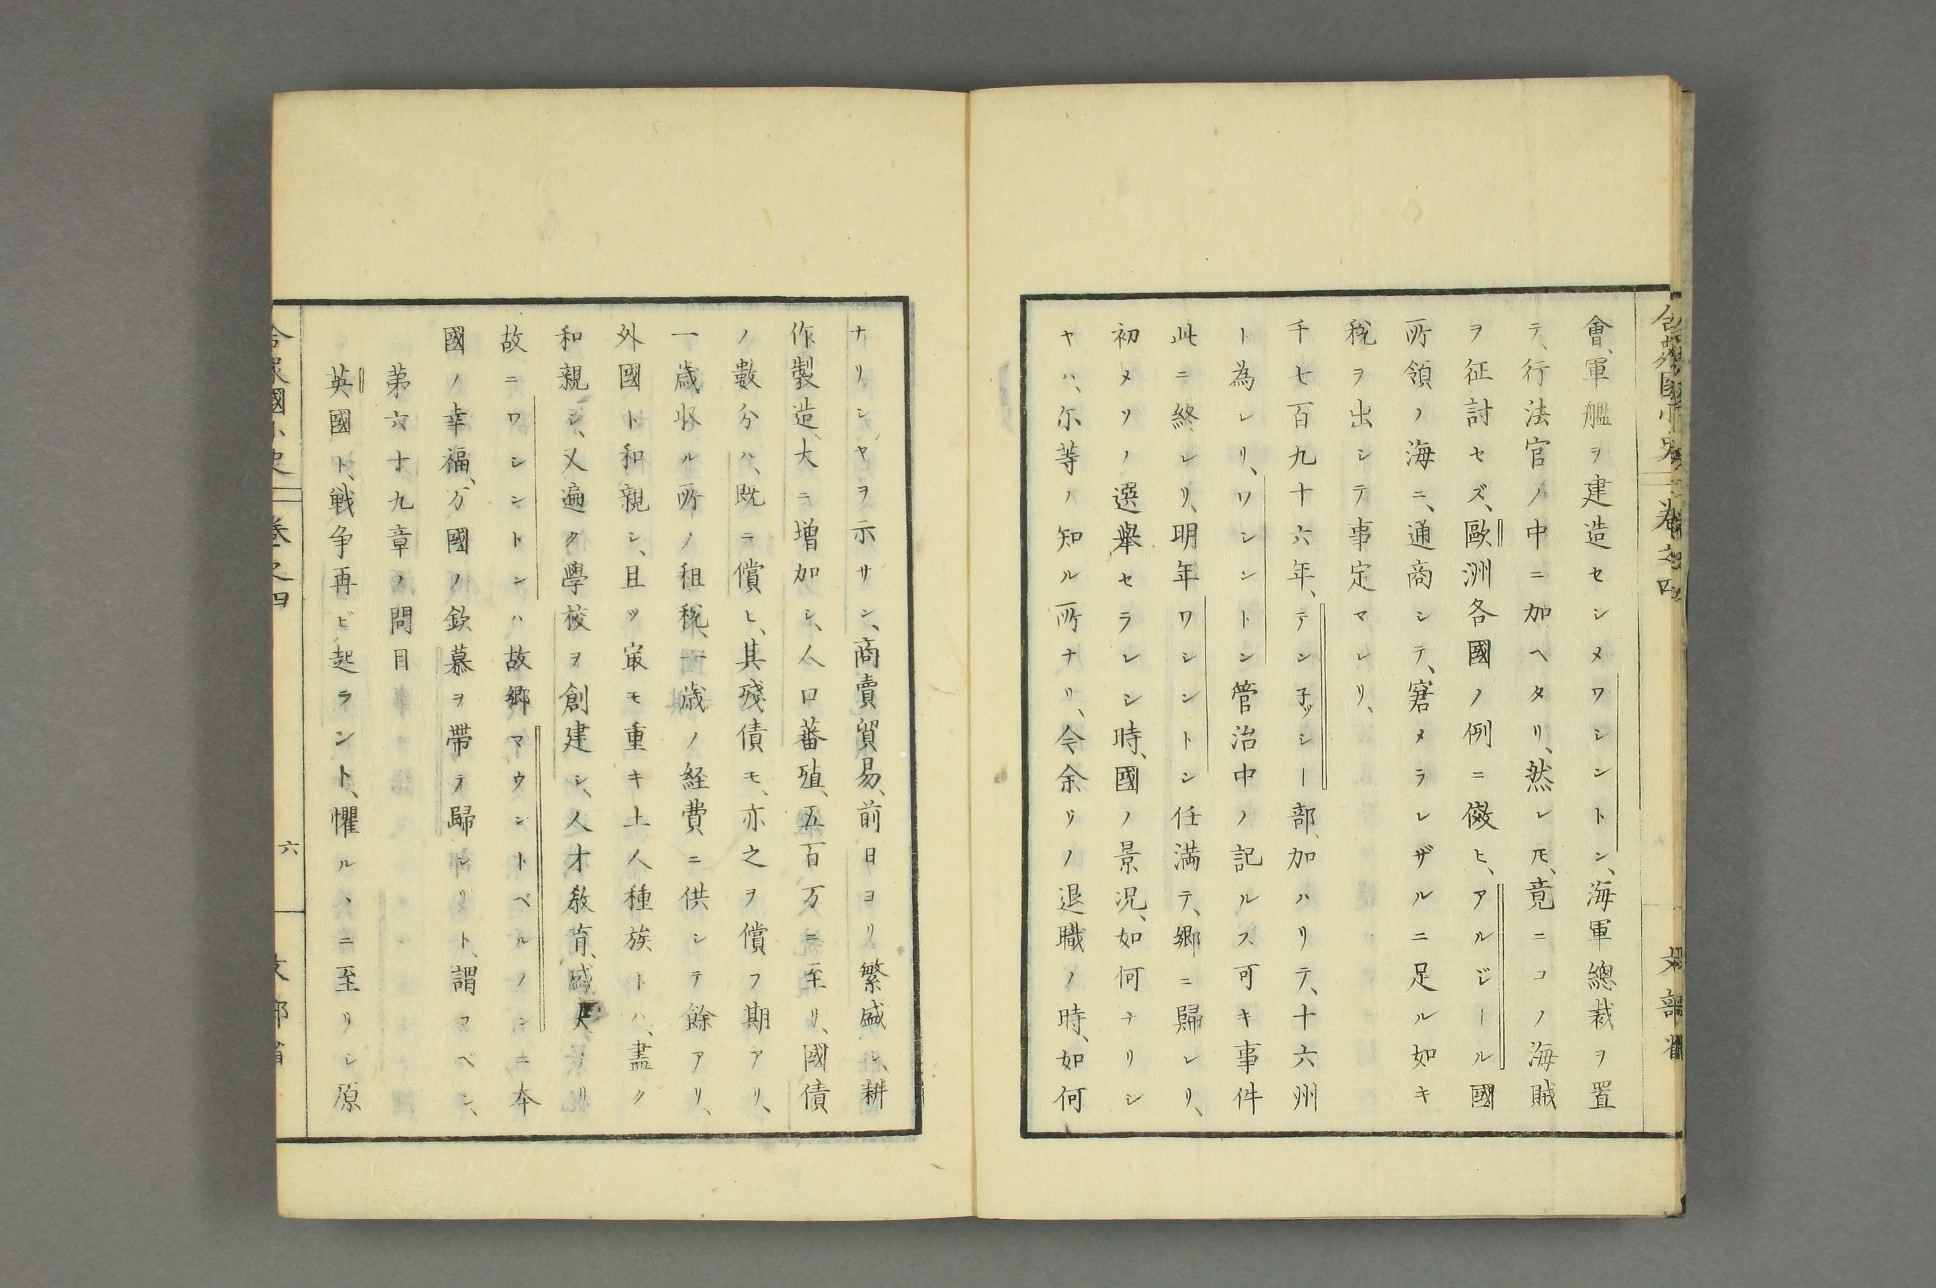 會、軍艦ヲ建造セシメワシントン、海軍總裁ヲ置
テ、行法官ノ中ニ加ヘタリ、然レ𪜈、竟ニコノ海賊
ヲ征討セズ、歐洲各國ノ例ニ傚ヒ、アルジール國
所領ノ海ニ、通商シテ、窘メラレザルニ足ル如キ
税ヲ出シテ事定マレリ、
千七百九十六年、テン子ッシー部、加ハリテ、十六州
ト為レリ、ワシントン管治中ノ記ルス可キ事件
此ニ終レリ、明年ワシントン任満テ、郷ニ歸レリ、
初メソノ選舉セラレシ時、國ノ景況、如何ナリシ
ヤハ、尓等ノ知ル所ナリ、今余ソノ退職ノ時、如何
ナリシヤヲ示サン、商賣貿易、前日ヨリ繁盛シ、耕
作製造、大ニ増加シ、人口蕃殖、五百万ニ至リ、國債
ノ數分ハ、既ニ償ヒ、其殘債モ、亦之ヲ償フ期アリ、
一歳收ル所ノ租税、一歳ノ経費ニ供シテ餘アリ、
外國ト和親シ、且ツ㝡モ重キ土人種族トハ、盡ク
和親シ、又遍ク學校ヲ創建シ、人才敎育、盛大ナリ
故ニワシントンハ故郷マウントベルノンニ夲
國ノ幸福、万國ノ欽慕ヲ帶テ歸レリト、謂フベシ、
第六十九章ノ問目
英國ト、戦争再ビ起ラント、懼ルヽニ至リシ原
合衆國小史 卷之四
六
文部省